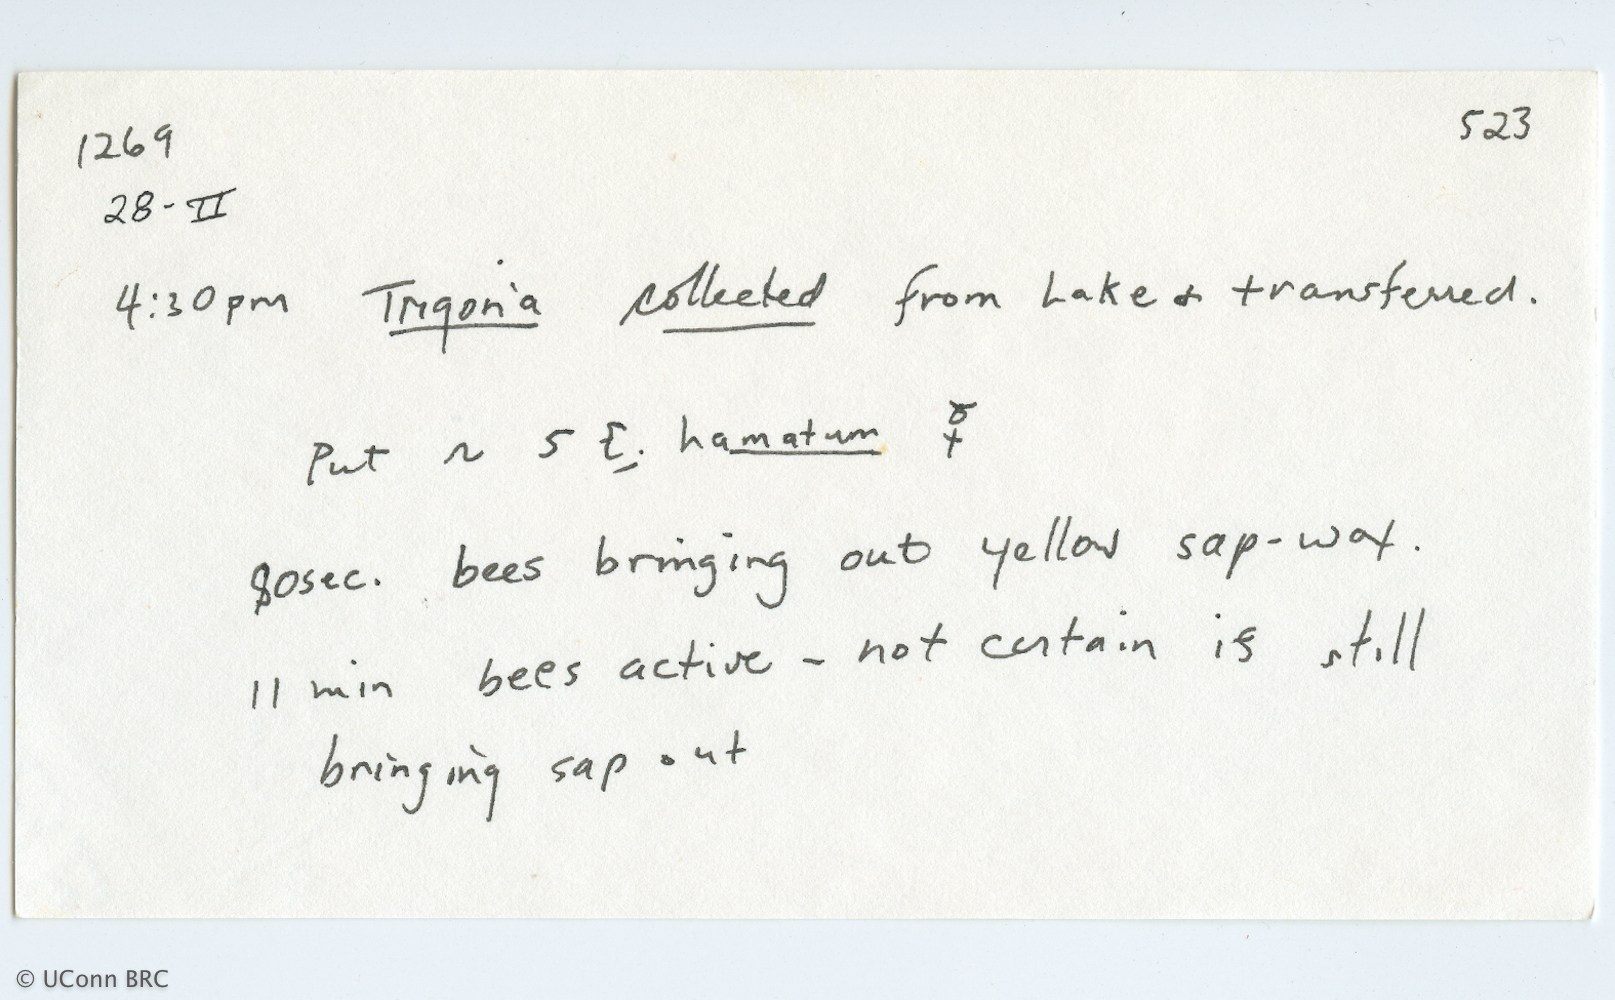 1269
523
28-II
4:30pm Trigona collected from Lake & transferred.
Put ~ 5 E. hamatum ☿
sec. bees bringing out yellow sap-wax.
11 min bees active - not certain is still
bringing sap out
© UConn BRC